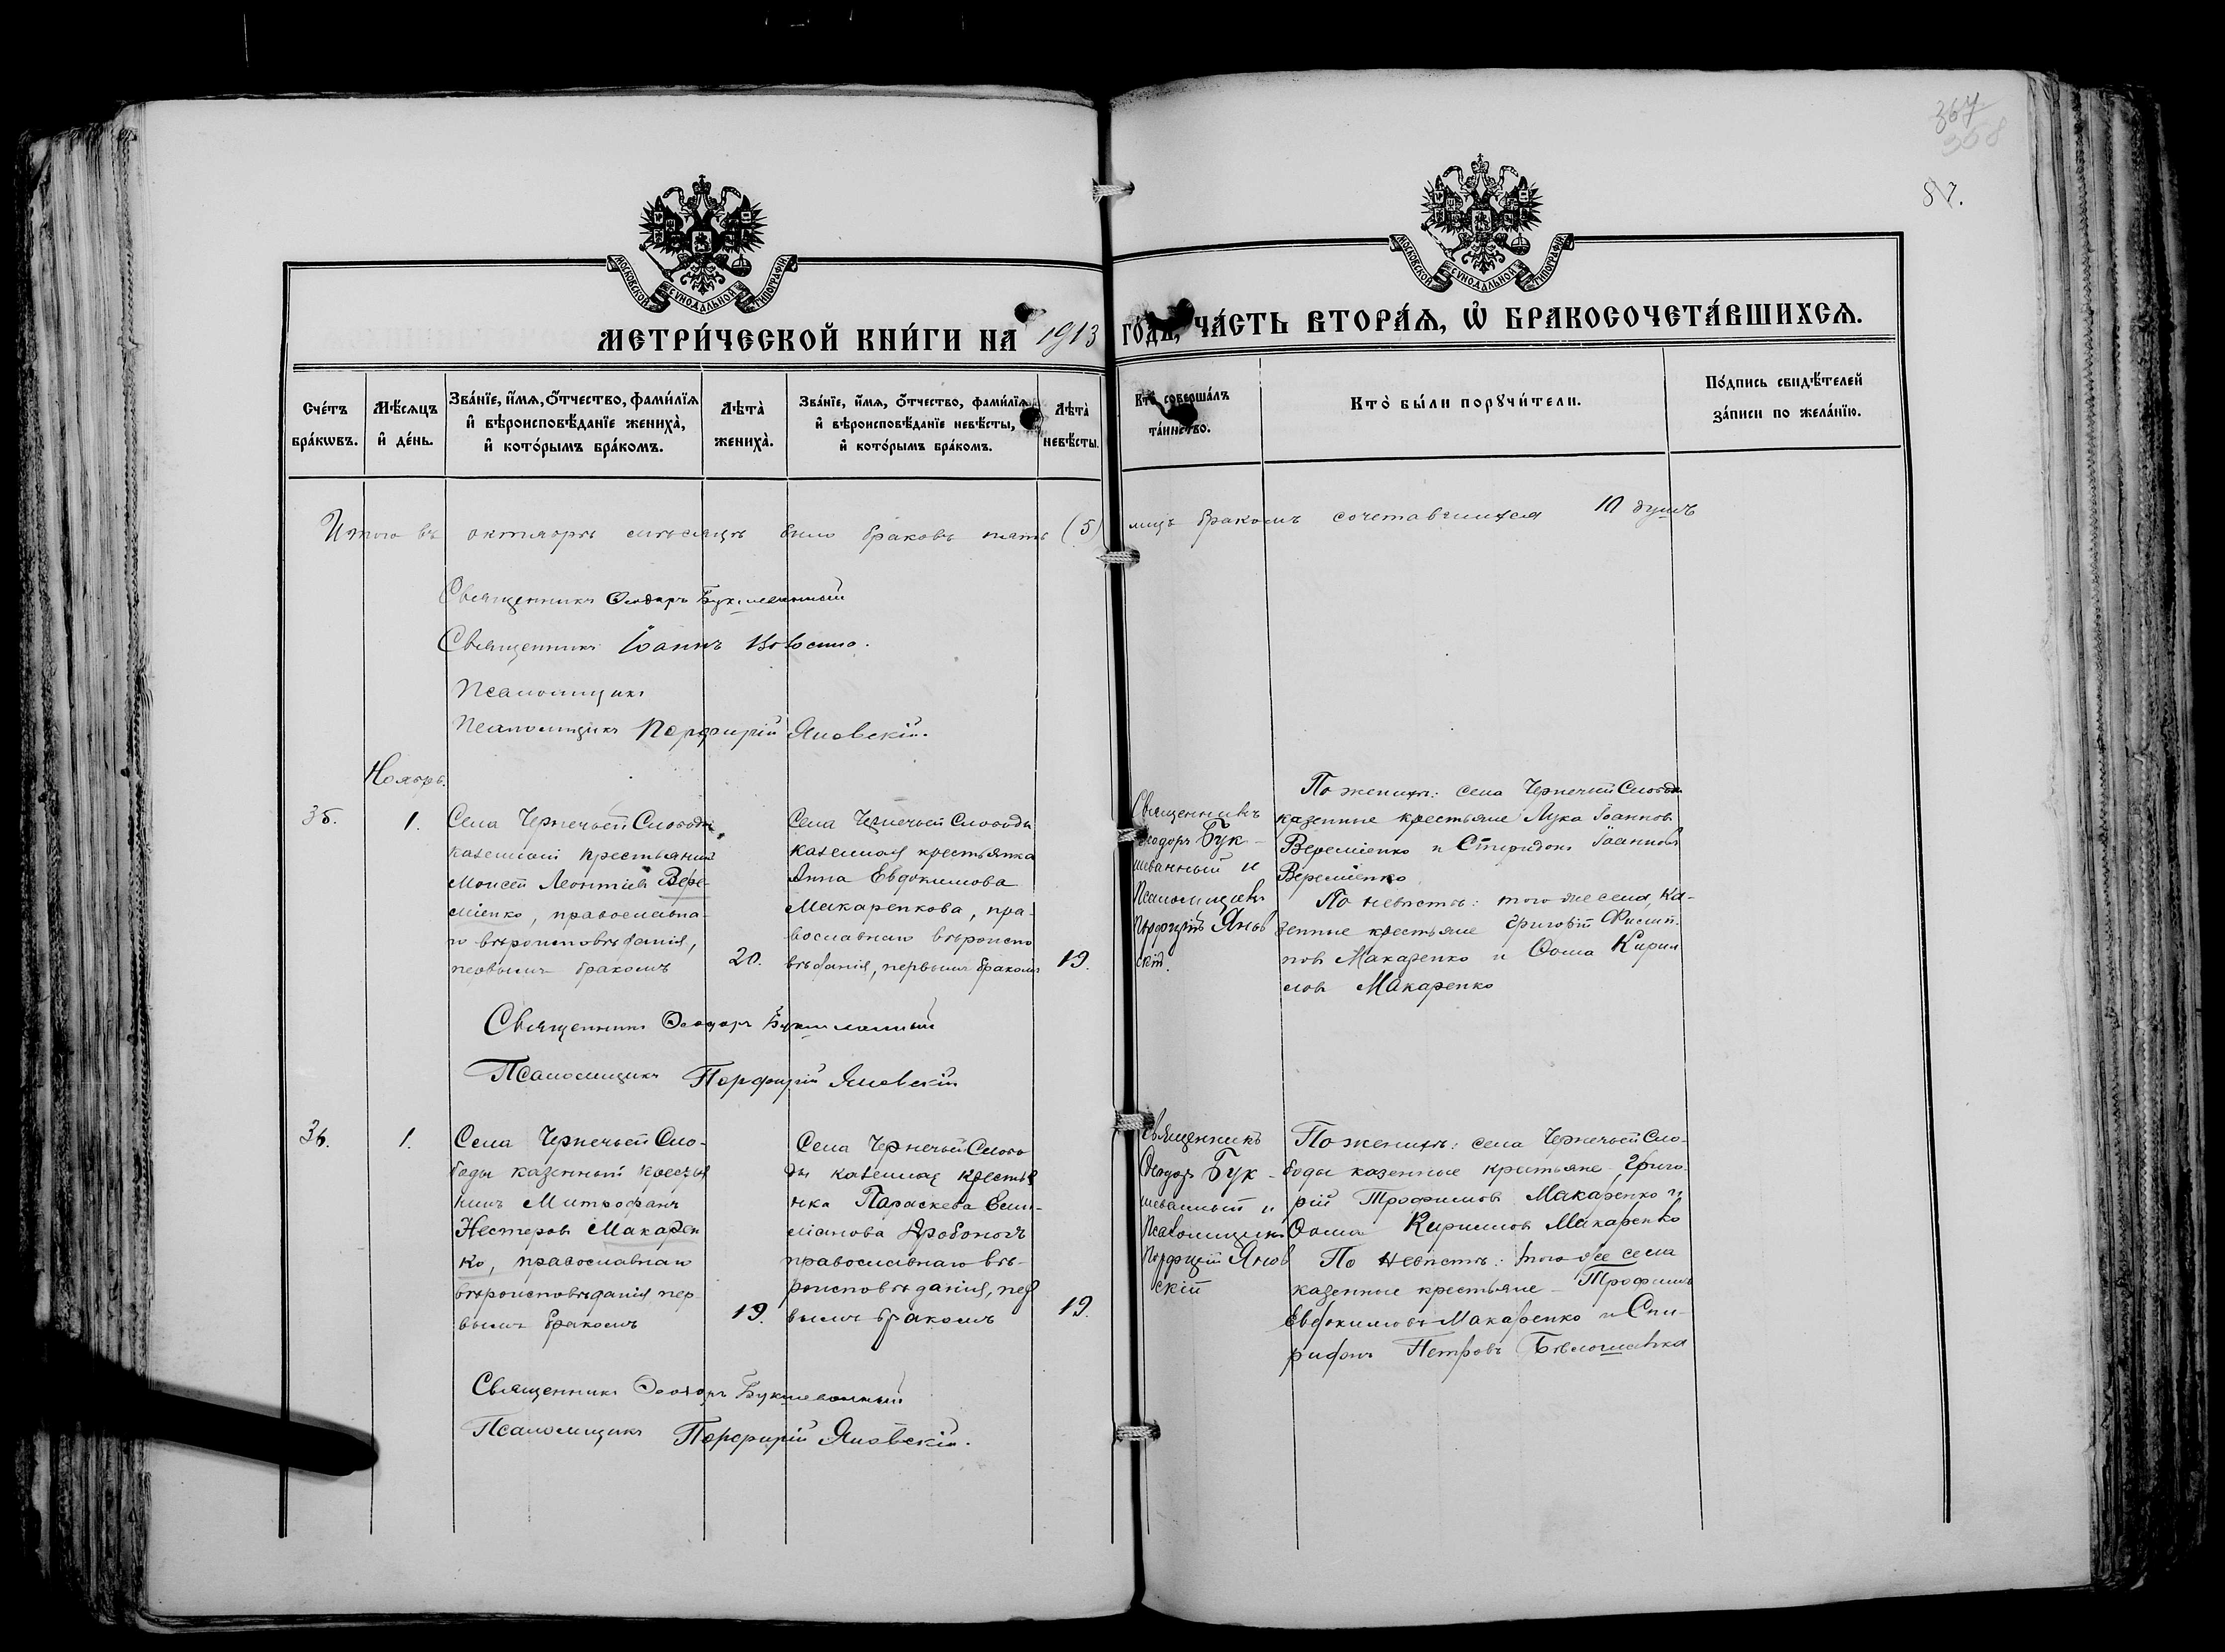 367
358
87.
МОСКОВСКОЙ СѴНОДАЛЬНОЙ ТИПОГРАФІИ
МОСКОВСКОЙ СѴНОДАЛЬНОЙ ТИПОГРАФІИ
МЕТРИ́ЧЕСКОЙ КНИ́ГИ НА 1913 ГО́ДЪ, ЧА́СТЬ ВТОРА́Ѧ, Ѡ҆ БРАКОСОЧЕТА́ВШИХСѦ.
Сче́тъ бра́кѡвъ.
Мѣ́сѧцъ и҆ де́нь.
Зва́нїе, и҆́мѧ, ѻ҆́тчество, фами́лїѧ
и҆ вѣроисповѣ́данїе жениха̀,
и҆ кото́рымъ бра́комъ.
Лѣта̀ жениха̀.
Зва́нїе, и҆́мѧ, ѻ҆́тчество, фами́лїѧ
и҆ вѣроисповѣ́данїе невѣ́сты,
и҆ кото́рымъ бра́комъ.
Лѣта̀ невѣ́сты.
Кто̀ соверша́лъ та́инство.
Кто̀ бы́ли порꙋчи́тели.
По́дпись свидѣ́телей
за́писи по жела́нїю.
Итого въ октябрѣ мѣсяцѣ было браковъ пять (5) лицъ бракомъ сочетавшихся 10 душъ
Священникъ Ѳеодоръ Букшеванный
Священникъ Іоаннъ
Псаломщикъ
Псаломщикъ Порфирій Яновскій.
Ноябрь.
35.
1.
Села Чернечьей Слободы
казенный крестьянинъ
Моисей Леонтіевъ Вере-
міенко, православна-
го вѣроисповѣданія,
первымъ бракомъ
20.
Села Чернечьей Слободы
казенная крестьянка
Анна Евдокимова
Макаренкова, пра-
вославнаго вѣроиспо
вѣданія, первымъ бракомъ
19.
Священникъ
Ѳеодоръ Бук-
шеванный и
Псаломщикъ
Порфирій Янов
скій.
По женихѣ: села Чернечьей Слободы
казенные крестьяне Лука Іоанновъ
Вереміенко и Спиридонъ Іоанновъ
Вереміенко
По невѣстѣ: того же села, ка-
зенные крестьяне Григорій Филип-
повъ Макаренко и Ѳома Кирил
ловъ Макаренко
Священникъ Ѳеодоръ Букшеванный
Псаломщикъ Порфирій Яновскій
36.
1.
Села Чернечьей Сло-
боды казенный крестья
нинъ Митрофанъ
Нестеровъ Макарен
ко, православнаго
вѣроисповѣданія пер-
вымъ бракомъ
19.
Села Чернечьей Слобо
ды казенная крестья
нка Параскева Еми-
ліанова Дробоногъ
православнаго вѣ-
роисповѣданія, пер
вымъ бракомъ
19.
Священникъ
Ѳеодоръ Бук-
шеванный и
Псаломщикъ
Порфирій Янов
скій
По женихѣ: села Чернечьей Сло-
боды казенные крестьяне Григо-
рій Трофимовъ Макаренко и
Ѳома Кирилловъ Макаренко
По невѣстѣ: того же села
казенные крестьяне Трофимъ
Евдокимовъ Макаренко и Спи-
ридонъ Петровъ Бѣлошапка
Священникъ Ѳеодоръ Букшеванный
Псаломщикъ Порфирій Яновскій.